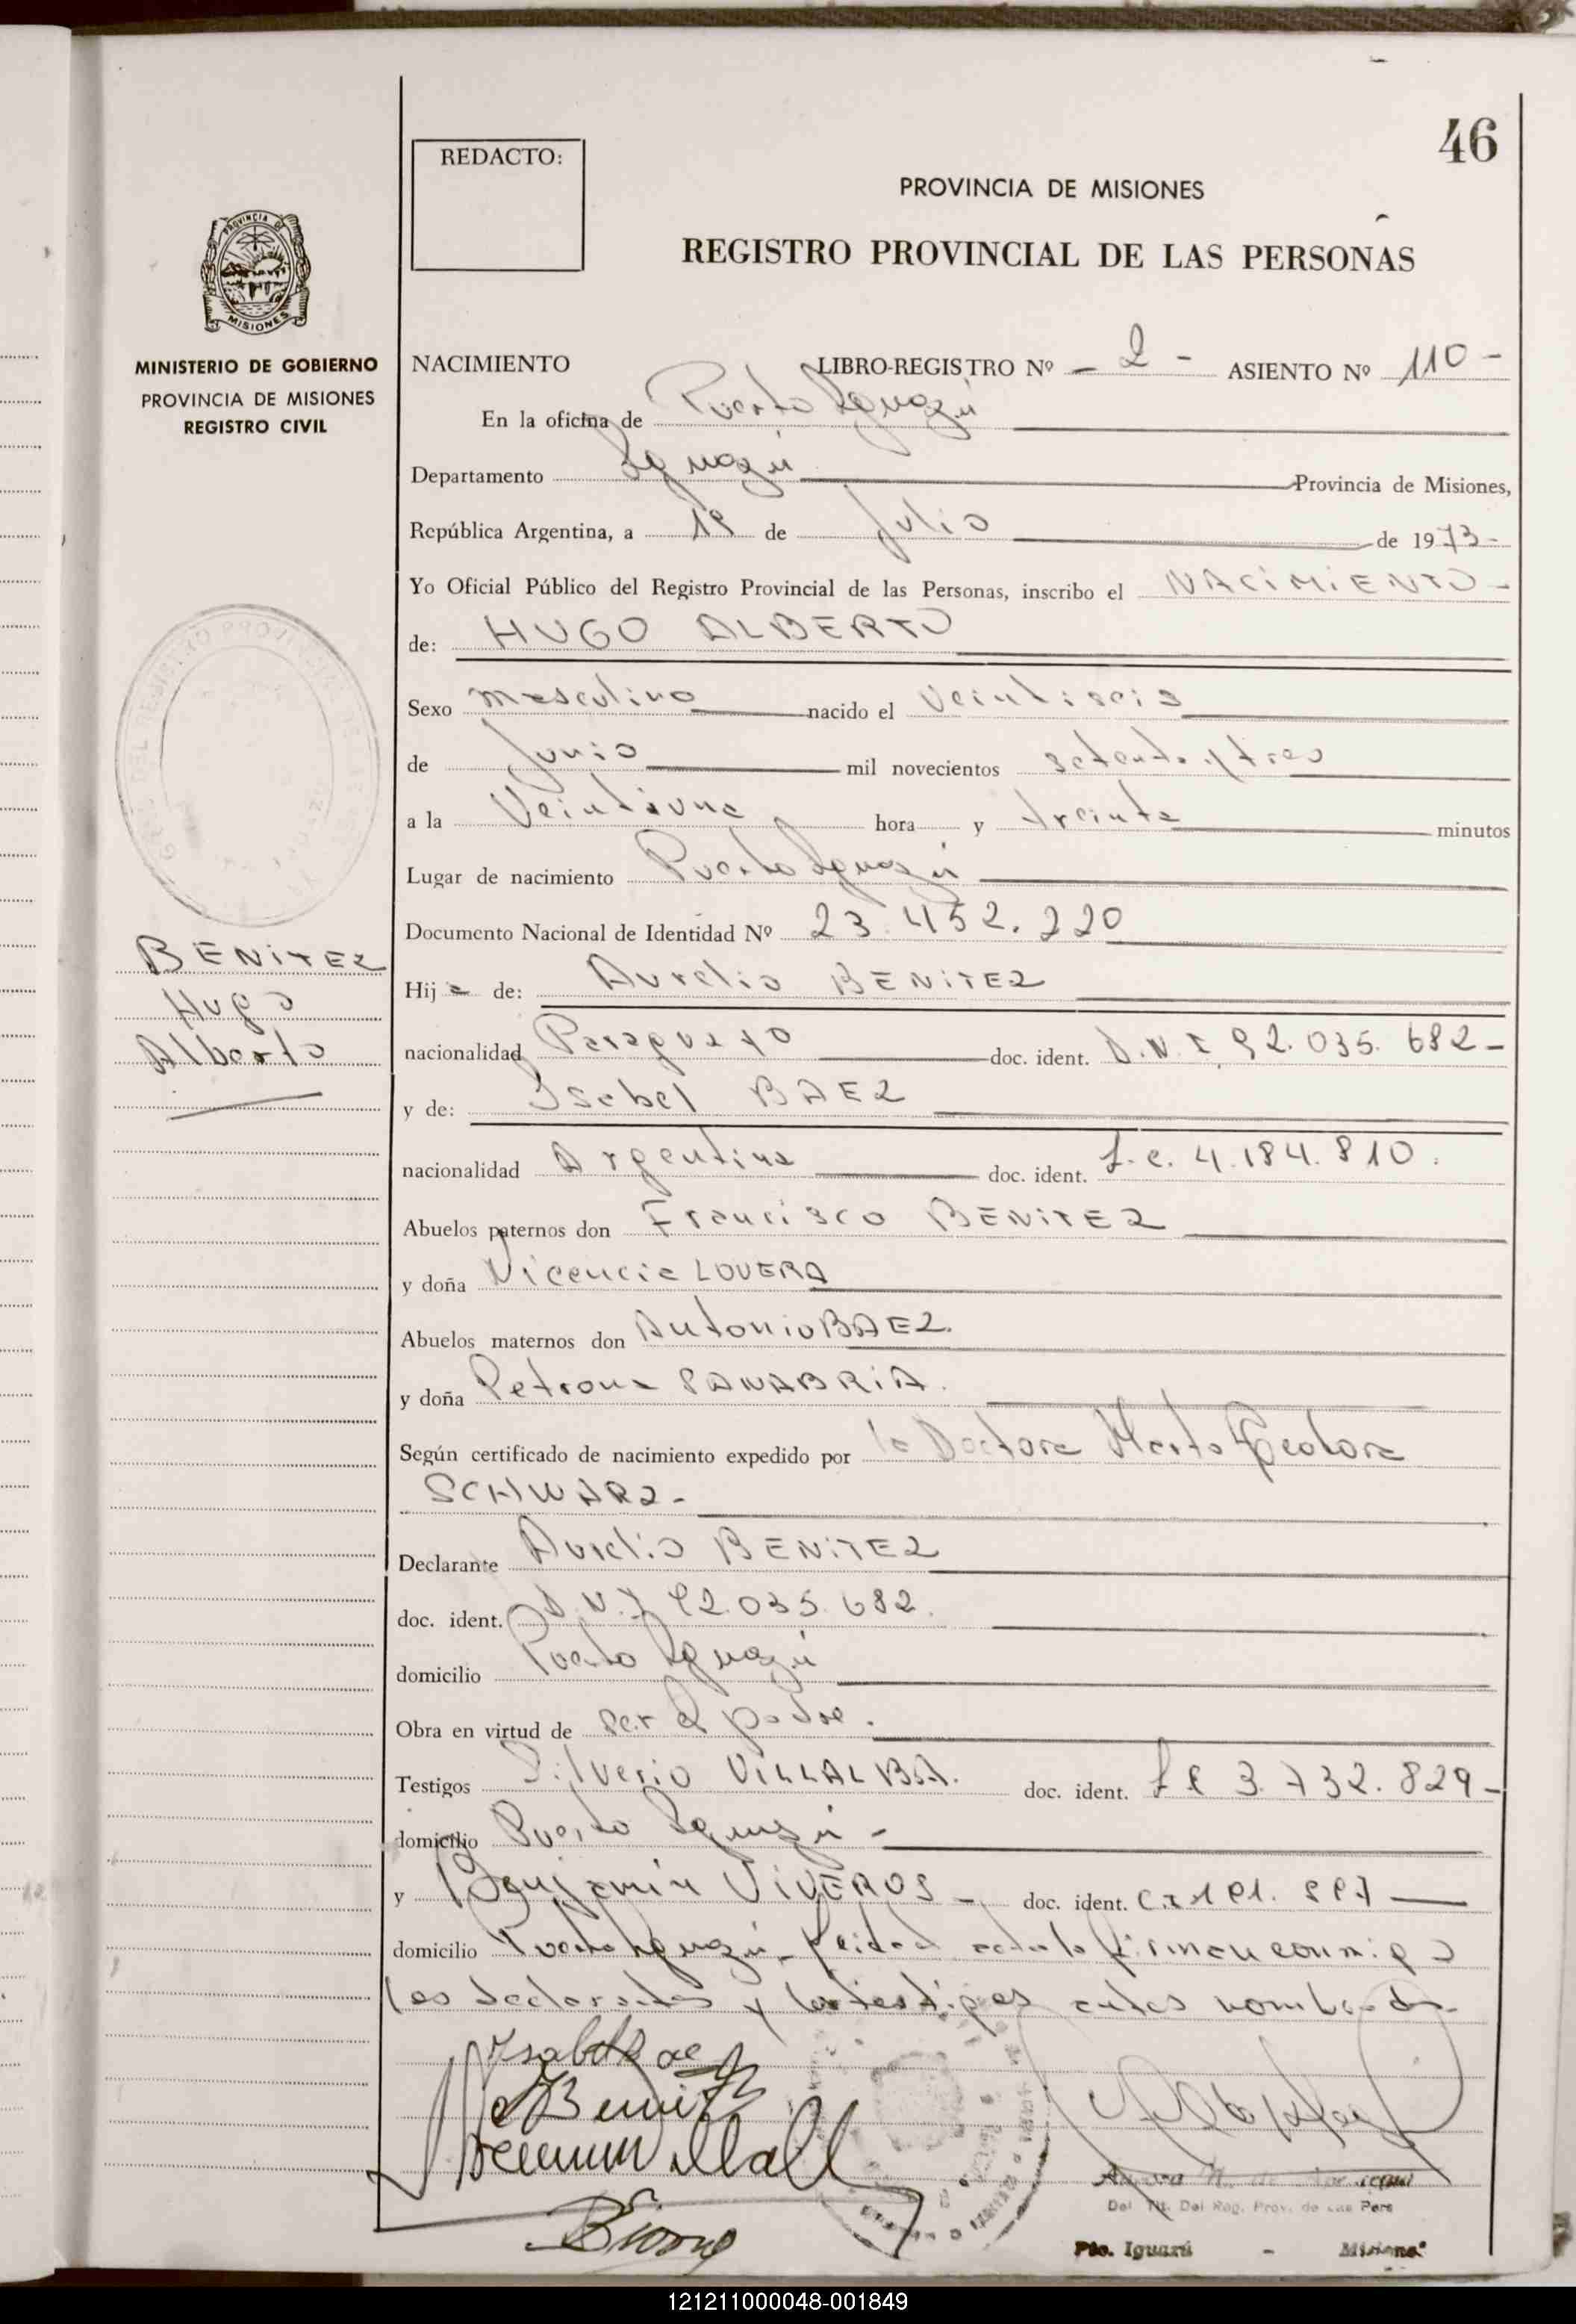 46
REDACTO:
PROVINCIA DE MISIONES
REGISTRO PROVINCIAL DE LAS PERSONAS
PROVINCIA DE
MISIONES
MINISTERIO DE GOBIERNO
PROVINCIA DE MISIONES
REGISTRO CIVIL
NACIMIENTO LIBRO-REGISTRO Nº - 2 - ASIENTO Nº 110 -
En la oficina de Puerto Iguazú
Departamento Iguazú Provincia de Misiones,
República Argentina, a 1º de Julio de 1973-
Yo Oficial Público del Registro Provincial de las Personas, inscribo el NACIMIENTO -
de: HUGO ALBERTO
Sexo masculino nacido el veintiseis
de Junio mil novecientos setenta y tres
a la Veintiuna hora y treinta minutos
Lugar de nacimiento Puerto Iguazú
Documento Nacional de Identidad Nº 23.452.220
BENITEZ
Hugo
Alberto
Hijo de: Aurelio BENITEZ
nacionalidad Paraguayo doc. ident. D.N.I 92.035.682-
y de: Isabel BAEZ
nacionalidad Argentina doc. ident. L.C. 4.184.810.
Abuelos paternos don Francisco BENITEZ
y doña Vicencia LOVERA
Abuelos maternos don Antonio BAEZ.
y doña Petrona SANABRIA.
Según certificado de nacimiento expedido por la Doctora Marta Teodora
SCHWARZ-
Declarante Aurelio BENITEZ
doc. ident. D.N.I 92.035.682.
domicilio Puerto Iguazú
Obra en virtud de ser el padre.
Testigos Silverio VILLALBA. doc. ident. L.E 3.732.829-
domicilio Puerto Iguazú -
y Benjamín VIVEROS - doc. ident.
domicilio Puerto Iguazú - Leida el acta la firman conmigo
los declarantes y los testigos antes nombrados
Del. Tit. Del Reg. Prov. de las Pers
Pto. Iguazú - Misiones
121211000048-001849